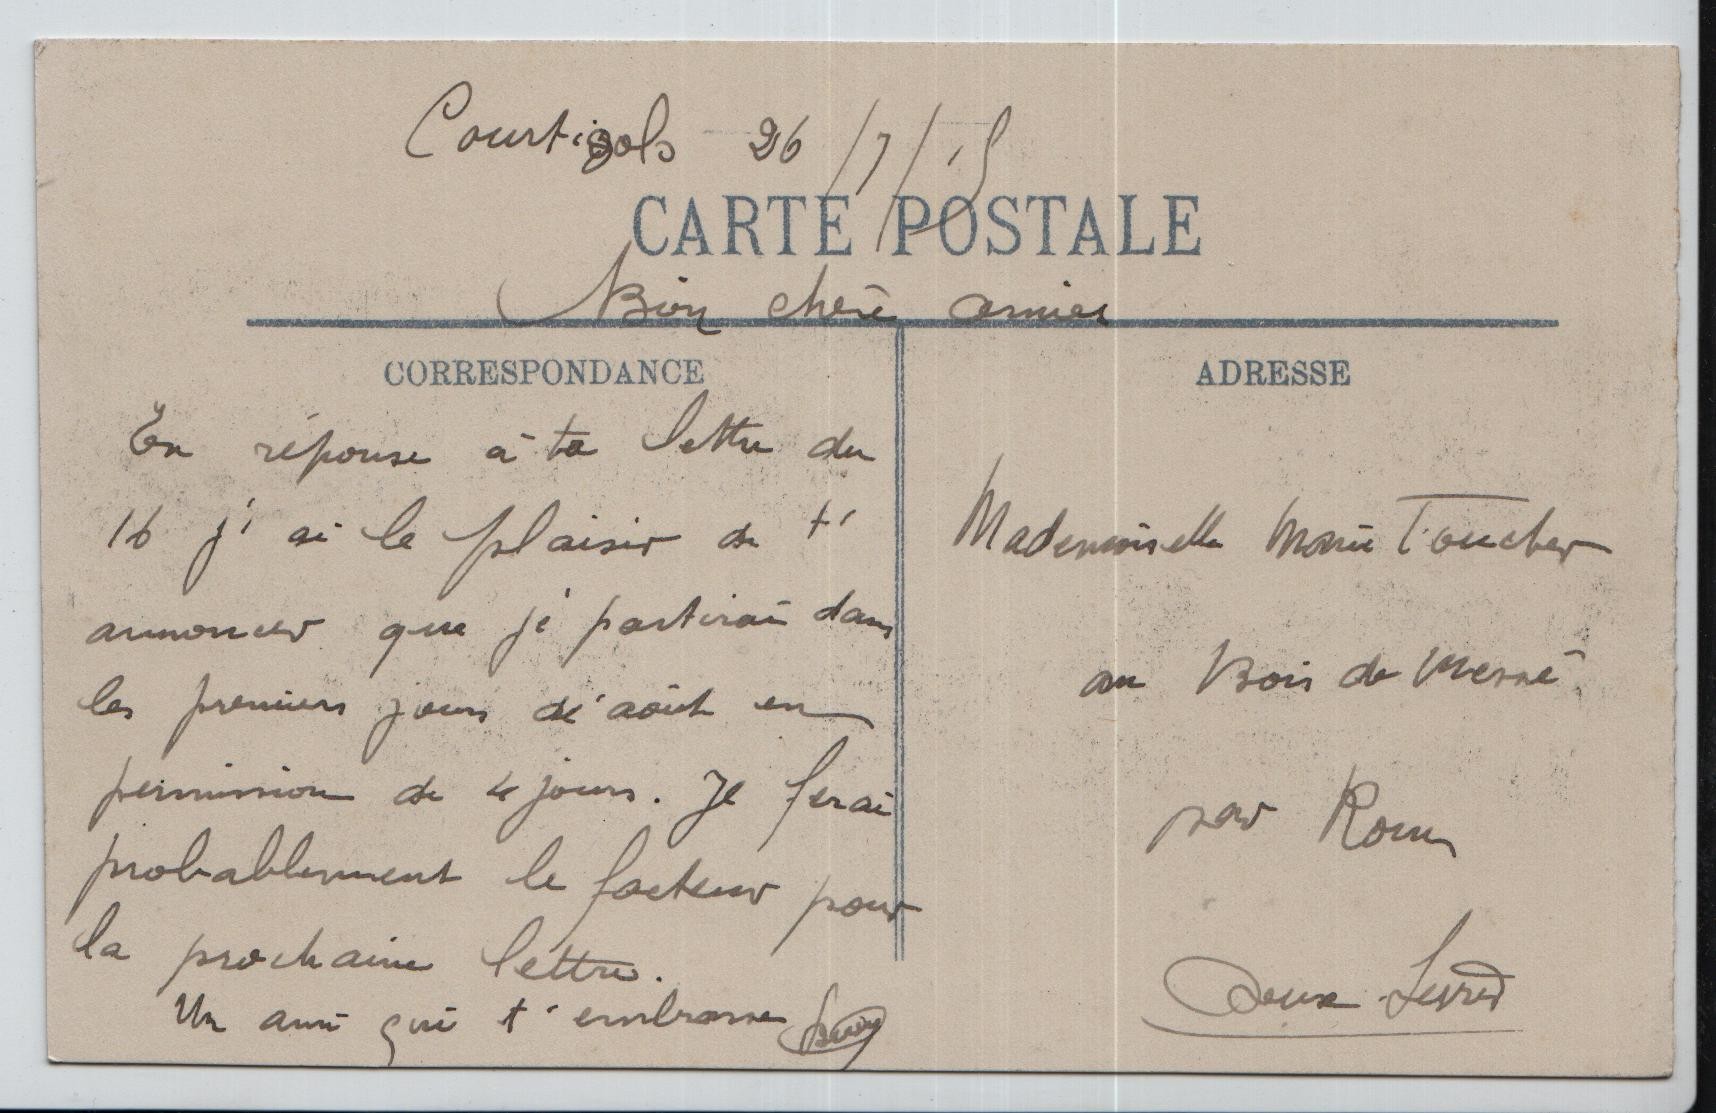 Courtisols 26/7/15
CARTE POSTALE
Bien chère amie
CORRESPONDANCE
ADRESSE
En réponse à ta lettre du
16 j'ai le plaisir de t'
annoncer que je partirai dans
les premiers jours d'août en
permission de 4 jours. Je ferai
probablement le facteur pour
la prochaine lettre.
Un ami qui t'embrasse
Mademoiselle Marie Toucher
au Bois de
par Rom
Deux Sèvres